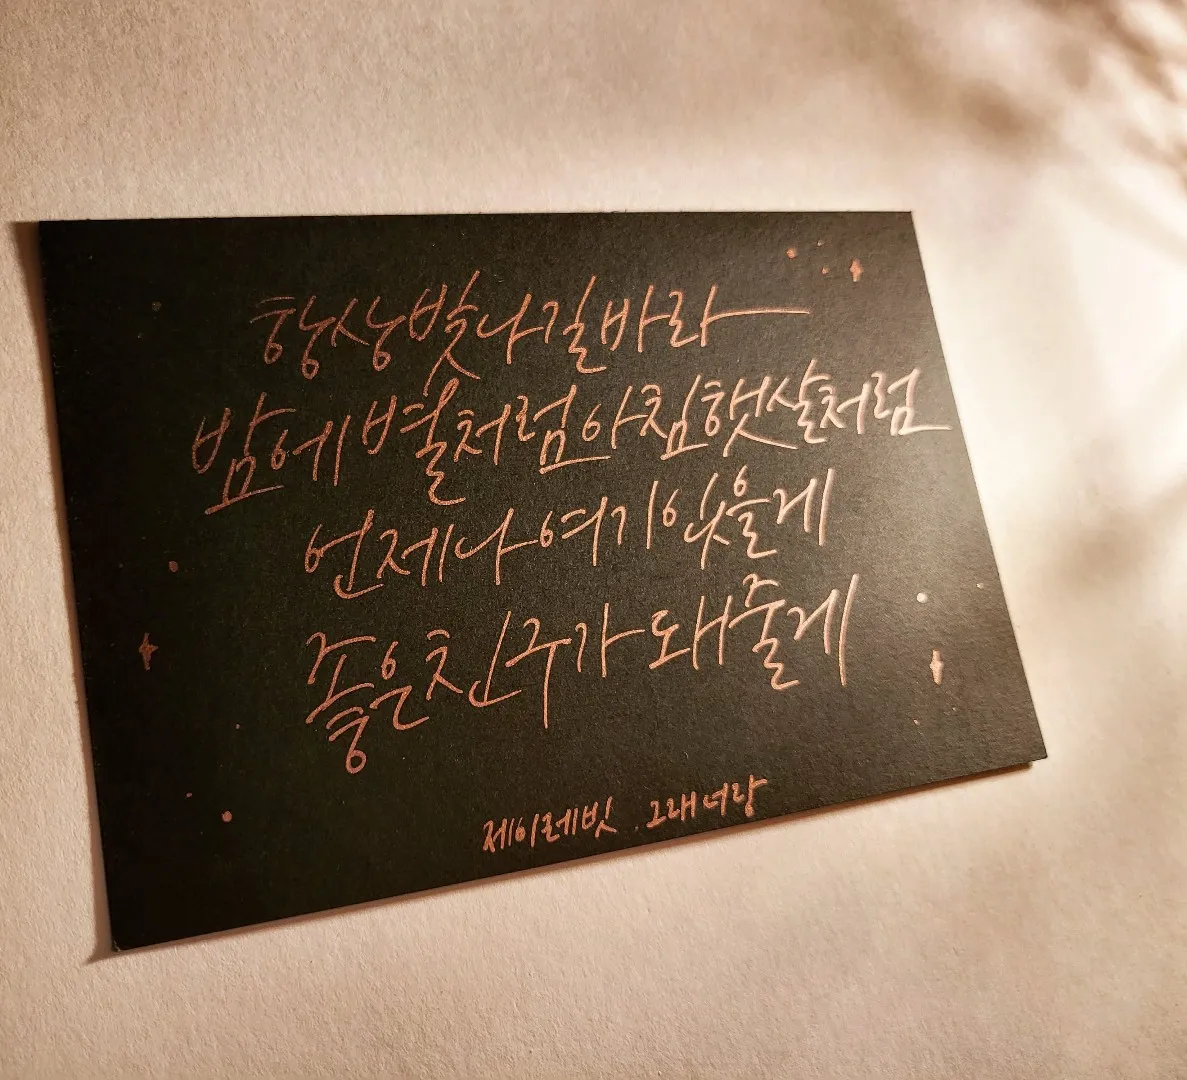 항상 빛나길 바라
밤에 별처럼 아침 햇살처럼
언제나 여기 있을게
좋은 친구가 돼 줄게
제이레빗 . 그래 너랑